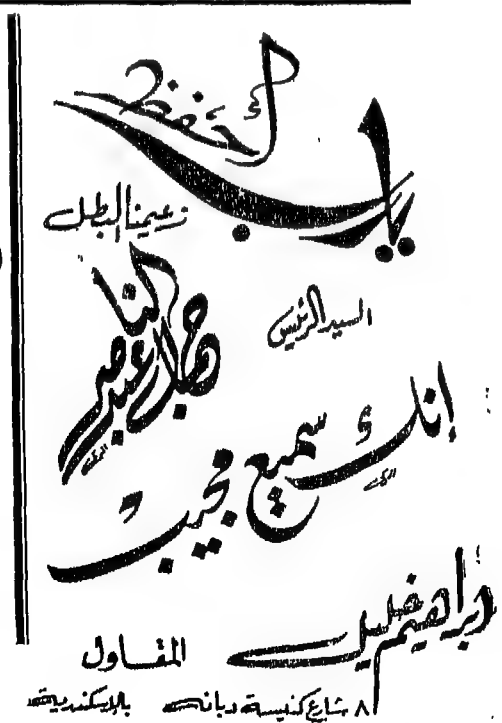 يارب احفظ
زعيمنا البطل
السيد الرئيس
جمال عبد الناصر
إنك سميع مجيب
إبراهيم خليل
المقاول
٨ شارع كنيسة دبانه بالإسكندرية